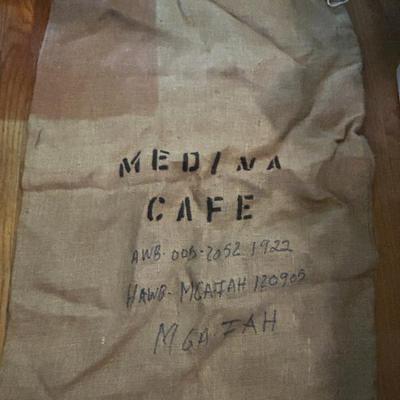 MEDINA
CAFE
AWB-005-2052 1922
HAWB-MGAIAH 120905
MGA-IAH